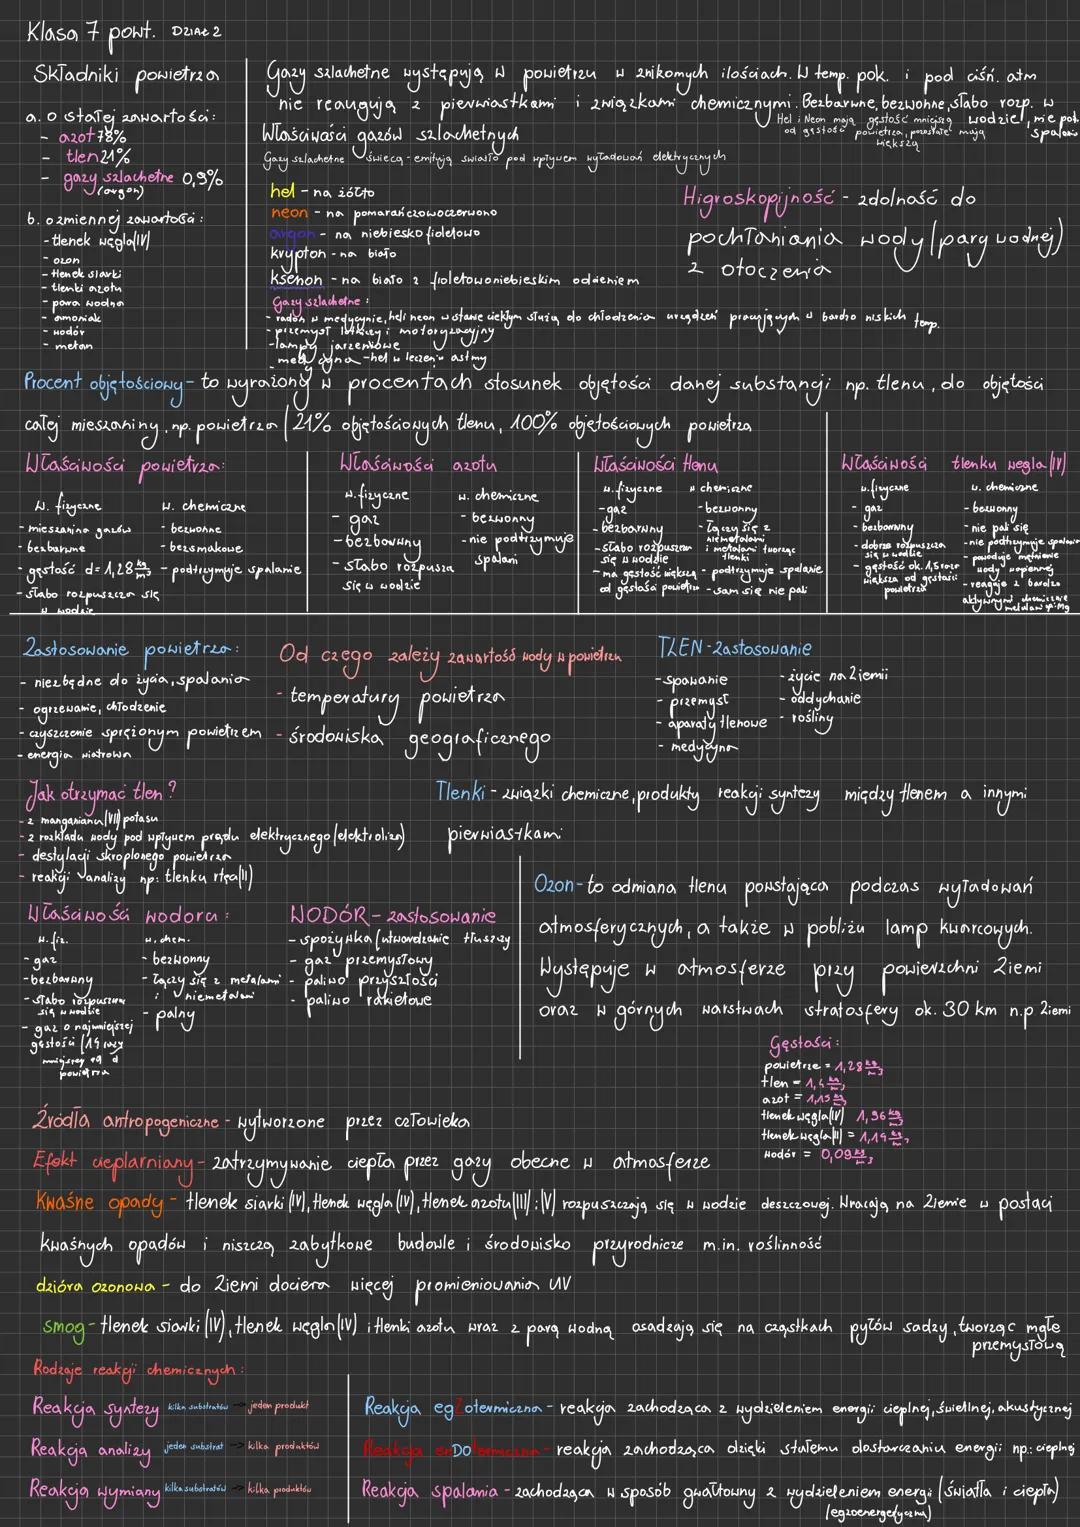 Klasa 7 powt. DZIAŁ 2
Składniki powietrza
a. o stałej zawartości:
- azot 78%
- tlen 21%
- gazy szlachetne 0,9%
(argon)
b. o zmiennej zawartości:
- tlenek węgla(IV)
- ozon
- tlenek siarki
- tlenki azotu
- para wodna
- amoniak
- wodór
- metan
Gazy szlachetne występują w powietrzu w znikomych ilościach. W temp. pok. i pod ciśn. atm
nie reaugują z pierwiastkami i związkami chemicznymi. Bezbarwne, bezwonne, słabo rozp. w
wodzie, nie pod. spalania
Hel i Neon mają gęstość mniejszą
od gęstość powietrza, pozostałe mają
większą
Właściwości gazów szlachetnych
Gazy szlachetne świecą - emitują światło pod wpływem wyładowań elektrycznych
hel - na żółto
neon - na pomarańczowoczerwono
argon - na niebiesko fioletowo
krypton - na biało
ksenon - na biało z fioletowoniebieskim odcieniem
Higroskopijność - zdolność do
pochłaniania wody (pary wodnej)
z otoczenia
Gazy szlachetne:
- radon w medycynie, hel i neon w stanie ciekłym służą do chłodzenia urządzeń pracujących w bardzo niskich temp.
- przemysł lotniczy i motoryzacyjny
- lampy jarzeniowe
- medycyna - hel w leczeniu astmy
Procent objętościowy - to wyrażony w procentach stosunek objętości danej substancji np. tlenu, do objętości
całej mieszaniny, np. powietrza (21% objętościowych tlenu, 100% objętościowych powietrza
Właściwości powietrza:
w. fizyczne
- mieszanina gazów
- bezbarwne
- gęstość d= 1,28 kg/m3
- słabo rozpuszcza się
w wodzie
w. chemiczne
- bezwonne
- bezsmakowe
- podtrzymuje spalanie
Właściwości azotu
w. fizyczne
- gaz
- bezbarwny
- słabo rozpusza
się w wodzie
w. chemiczne
- bezwonny
- nie podtrzymuje
spalani
Właściwości tlenu
w. fizyczne
- gaz
- bezbarwny
- słabo rozpuszcza
się w wodzie
- ma gęstość większą
od gęstości powietrza
w chemiczne
- bezwonny
- łączy się z
niemetalami
i metalami tworząc
tlenki
- podtrzymuje spalanie
- sam się nie pali
Właściwości tlenku węgla(IV)
w. fizyczne
- gaz
- bezbarwny
- dobrze rozpuszcza
się w wodzie
- gęstość ok. 1,5 raza
większa od gęstości
powietrza
w. chemiczne
- bezwonny
- nie pali się
- nie podtrzymuje spalania
- powoduje mętnienie
wody wapiennej
- reaguje z bardzo
aktywnymi chemicznie
metalami np: Mg
Zastosowanie powietrza:
- niezbędne do życia, spalania
- ogrzewanie, chłodzenie
- czyszczenie sprężonym powietrzem
- energia wiatrowa
Od czego zależy zawartość wody w powietrzu
- temperatury powietrza
- środowiska geograficznego
TLEN - zastosowanie
- spawanie
- przemysł
- aparaty tlenowe
- medycyna
- życie na Ziemii
- oddychanie
- rośliny
Jak otrzymać tlen?
- z manganianu(VII) potasu
- z rozkładu wody pod wpływem prądu elektrycznego (elektroliza)
- destylacji skroplonego powietrza
- reakcji analizy np: tlenku rtęci(II)
Tlenki - związki chemiczne, produkty reakcji syntezy między tlenem a innymi
pierwiastkami
Właściwości wodoru:
w. fiz.
- gaz
- bezbarwny
- słabo rozpuszcza
się w wodzie
- gaz o najmniejszej
gęstości (14 razy
mniejszej od d
powietrza
w. chem.
- bezwonny
- łączy się z metalami
i niemetalami
- palny
WODÓR - zastosowanie
- spożywka (utwardzanie tłuszczy
- gaz przemysłowy
- paliwo przyszłości
- paliwo rakietowe
Ozon - to odmiana tlenu powstająca podczas wyładowań
atmosferycznych, a także w pobliżu lamp kwarcowych.
Występuje w atmosferze przy powierzchni Ziemi
oraz w górnych warstwach stratosfery ok. 30 km n.p Ziemi
Gęstości:
powietrze = 1,28 kg/m3
tlen = 1,4 kg/m3
azot = 1,15 kg/m3
tlenek węgla(IV) 1,96 kg/m3
tlenek węgla(II) = 1,14 kg/m3
Wodór = 0,09 kg/m3
Źródła antropogeniczne - wytworzone przez człowieka
Efekt cieplarniany - zatrzymywanie ciepła przez gazy obecne w atmosferze
Kwaśne opady - tlenek siarki(IV), tlenek węgla(IV), tlenek azotu(III) i (V) rozpuszczają się w wodzie deszczowej. Wracają na Ziemie w postaci
kwaśnych opadów i niszczą zabytkowe budowle i środowisko przyrodnicze m.in. roślinność
dzióra ozonowa - do Ziemi dociera więcej promieniowania UV
smog - tlenek siarki(IV), tlenek węgla(IV) i tlenki azotu wraz z parą wodną osadzają się na cząstkach pyłów sadzy, tworząc mgłę
przemysłową
Rodzaje reakcji chemicznych:
Reakcja syntezy kilka substratów -> jeden produkt
Reakcja analizy jeden substrat -> kilka produktów
Reakcja wymiany kilka substratów -> kilka produktów
Reakcja egZotermiczna - reakcja zachodząca z wydzieleniem energii cieplnej, świetlnej, akustycznej
Reakcja enDOtermiczna - reakcja zachodząca dzięki stałemu dostarczaniu energii np.: cieplnej
Reakcja spalania - zachodząca w sposób gwałtowny z wydzieleniem energi (światła i ciepła)
(egzoenergetyczna)